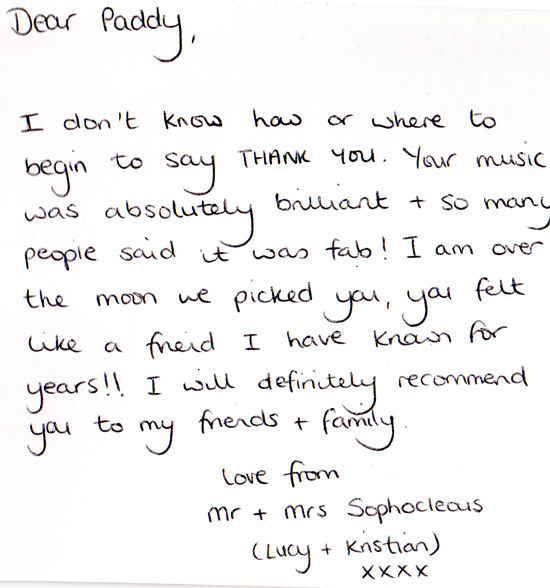 Dear Paddy,
I don't know how or where to
begin to say THANK YOU. Your music
was absolutely brilliant + so many
people said it was fab! I am over
the moon we picked you, you felt
like a freind I have known for
years!! I will definitely recommend
you to my friends + family.
Love from
Mr + Mrs Sophocleous
(Lucy + Kristian)
xxxx